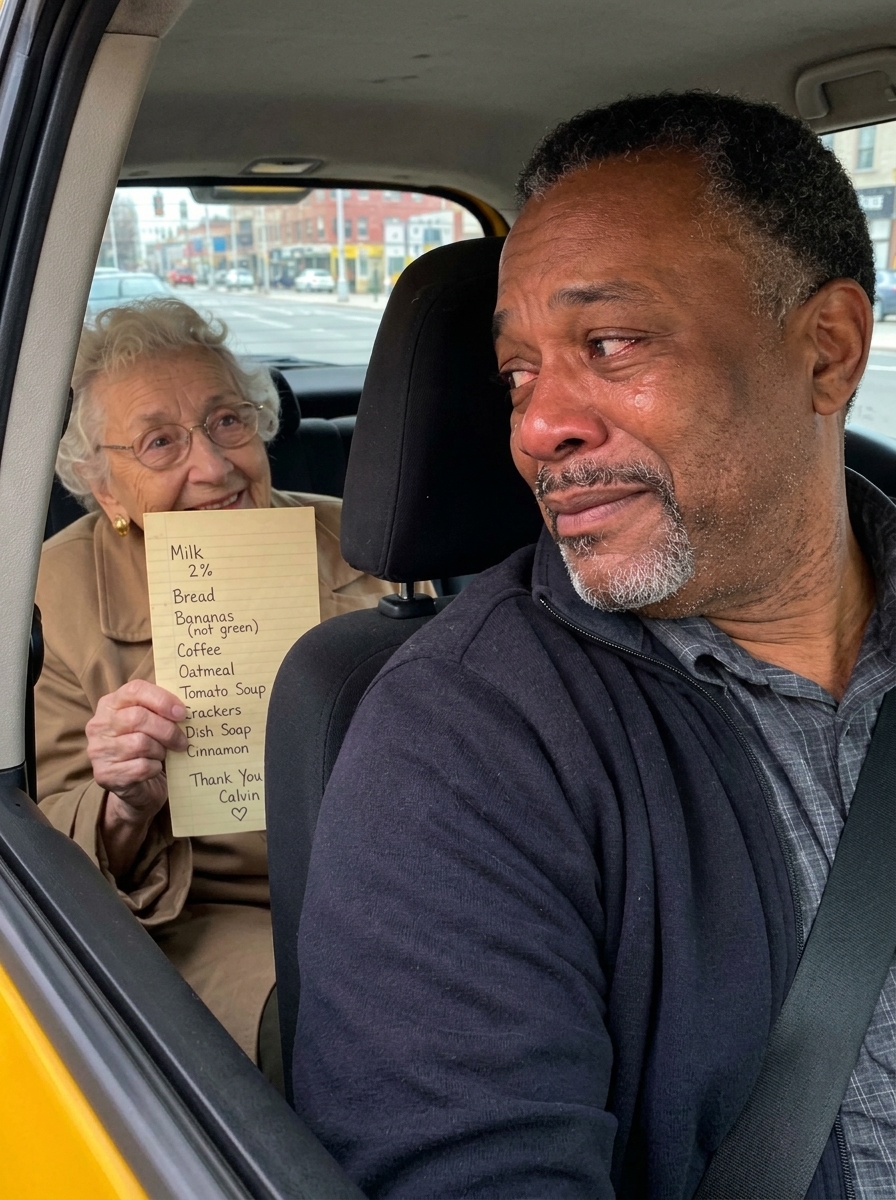 Milk
2%
Bread
Bananas
(not green)
Coffee
Oatmeal
Tomato Soup
Crackers
Dish Soap
Cinnamon
Thank You
Calvin
♡